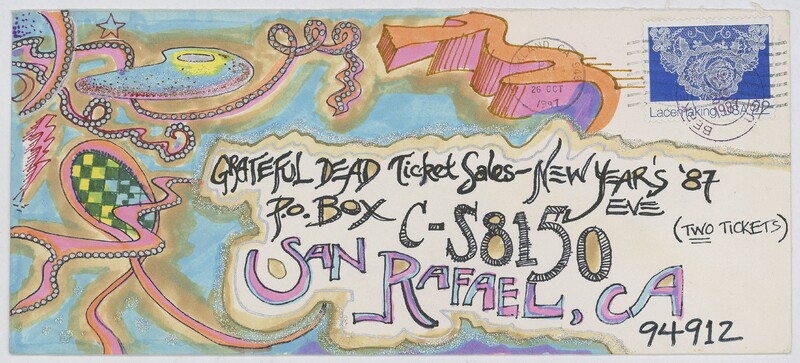 GRATEFUL DEAD Ticket Sales - NEW YEAR'S '87
EVE
P.O. BOX C-S8150
(TWO TICKETS)
SAN RAFAEL, CA
94912
26 OCT
Lacemaking USA 22